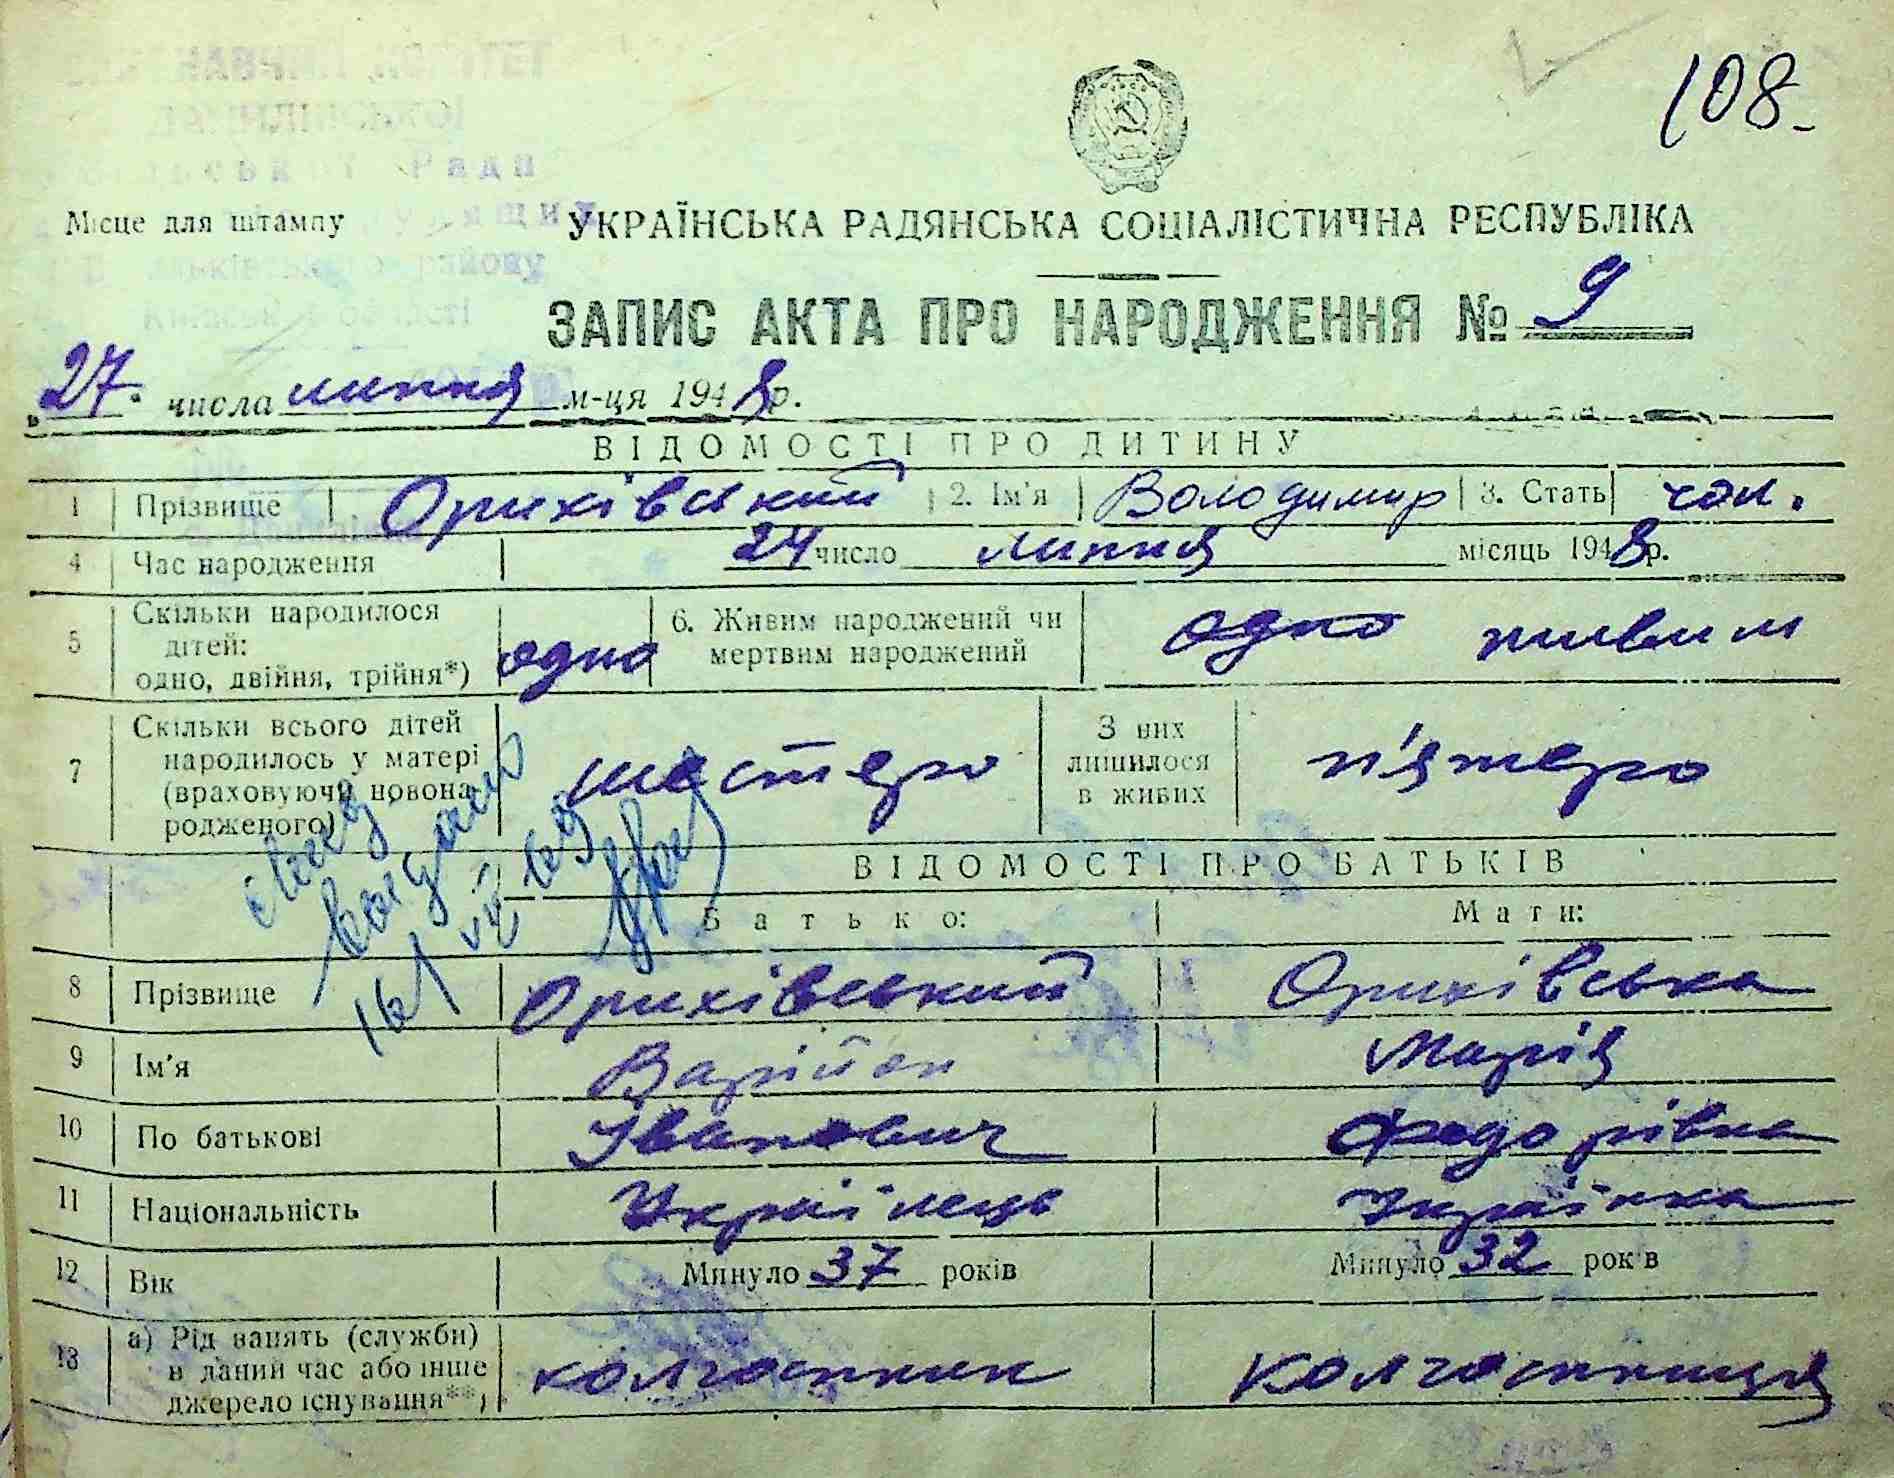 108.
Місце для штампу
УКРАЇНСЬКА РАДЯНСЬКА СОЦІАЛІСТИЧНА РЕСПУБЛІКА
ЗАПИС АКТА ПРО НАРОДЖЕННЯ № 9
„27" числа липня м-ця 1948 р.
ВІДОМОСТІ ПРО ДИТИНУ
1 Прізвище Орихівський 2. Ім'я Володимир 3. Стать чол.
4 Час народження 24 число липня місяць 1948 р.
5 Скільки народилося дітей: одно, двійня, трійня*) одно 6. Живим народжений чи мертвим народжений одно живим
7 Скільки всього дітей народилось у матері (враховуючи новонародженого) шестеро З них лишилося в живих п'ятеро
ВІДОМОСТІ ПРО БАТЬКІВ
Батько: Мати:
8 Прізвище Орихівський Орихівська
9 Ім'я Марія
10 По батькові Іванович Федорівна
11 Національність Українець Українка
12 Вік Минуло 37 років Минуло 32 років
13 а) Рід занять (служби) в даний час або інше джерело існування**) колгоспник колгоспниця